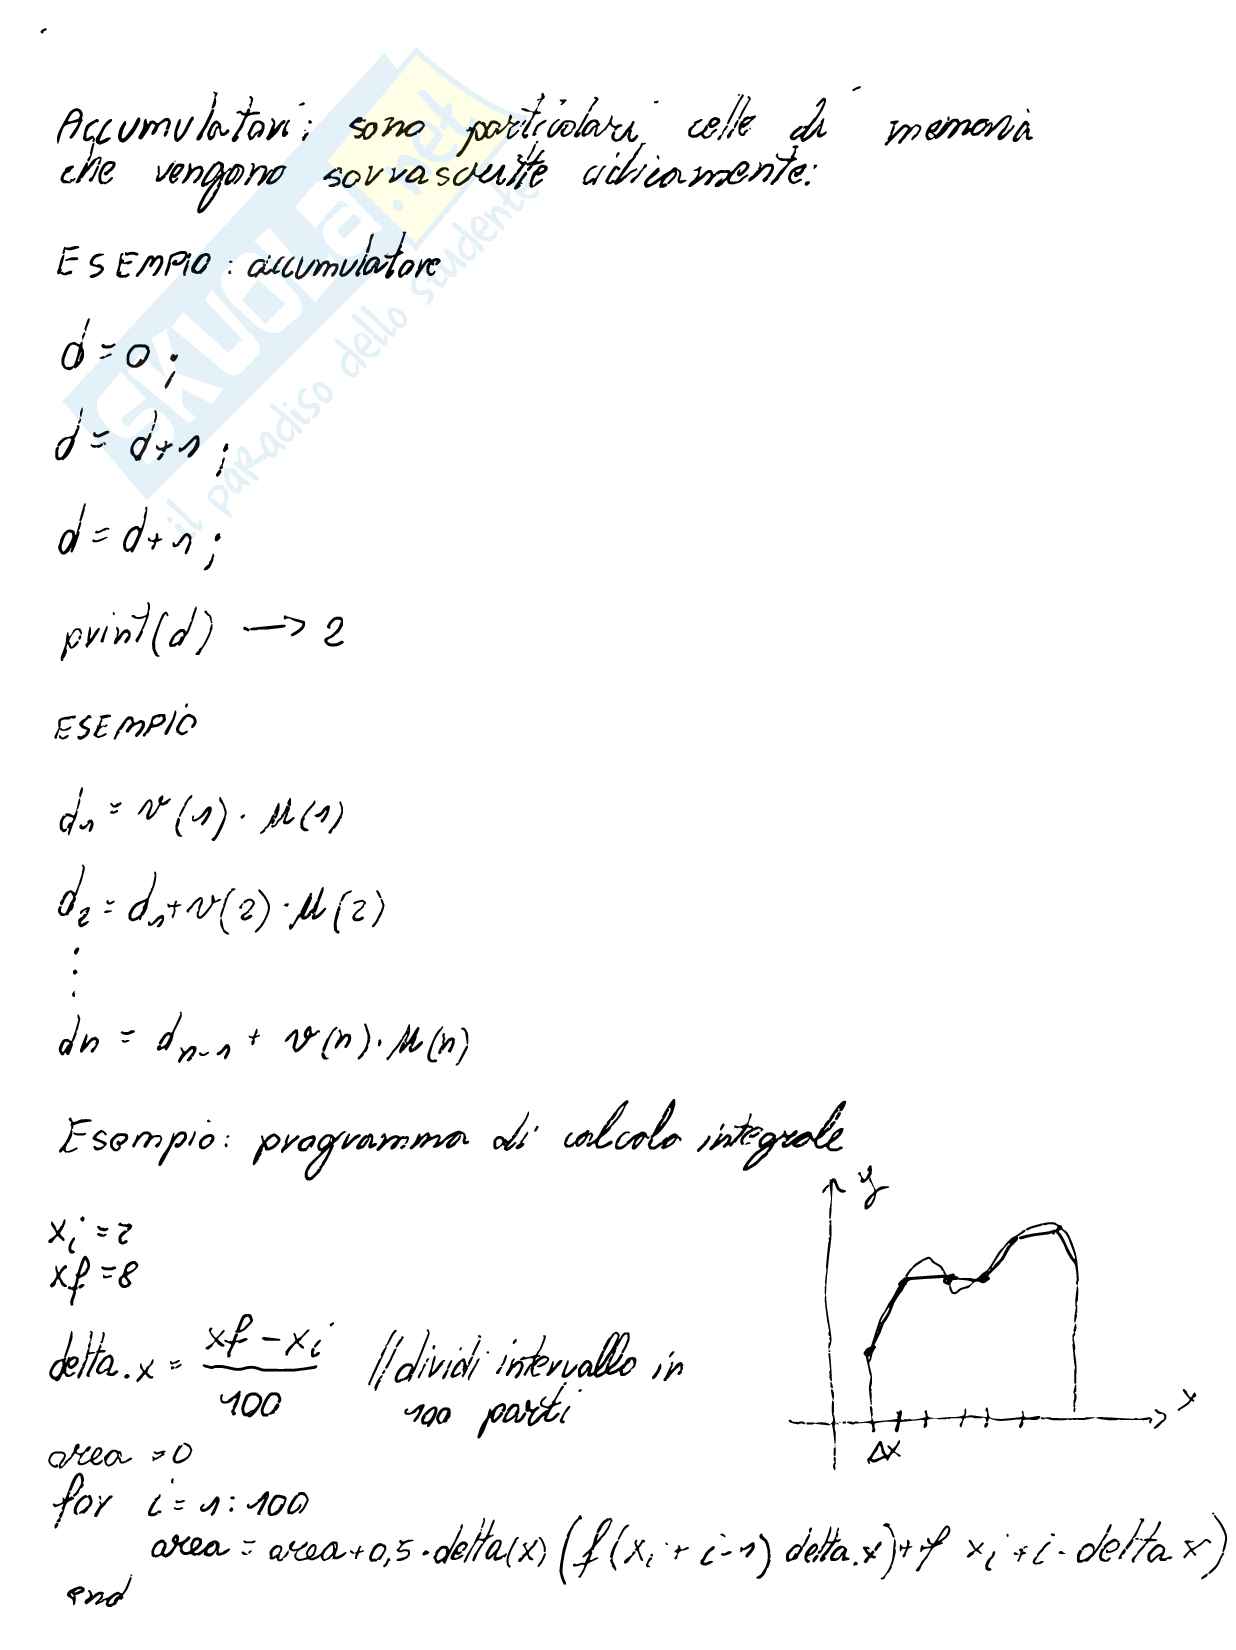 Accumulatori: sono particolari celle di memoria
che vengono sovrascritte ciclicamente:
ESEMPIO: accumulatore
d=0;
d=d+1;
d=d+1;
print(d) → 2
ESEMPIO
d₁ = v(1)·u(1)
d₂ = d₁+v(2)·u(2)
⋮
dn = dₙ₋₁ + v(n)·u(n)
Esempio: programma di calcolo integrale
y
xi=2
xf=8
delta.x = (xf-xi)/100 //dividi intervallo in
100 parti
x
Δx
area =0
for i=1:100
area = area+0,5·delta(x) (f(xi+i-1) delta.x)+f xi+i·delta x)
end
SKUOLA.net
il paradiso dello studente